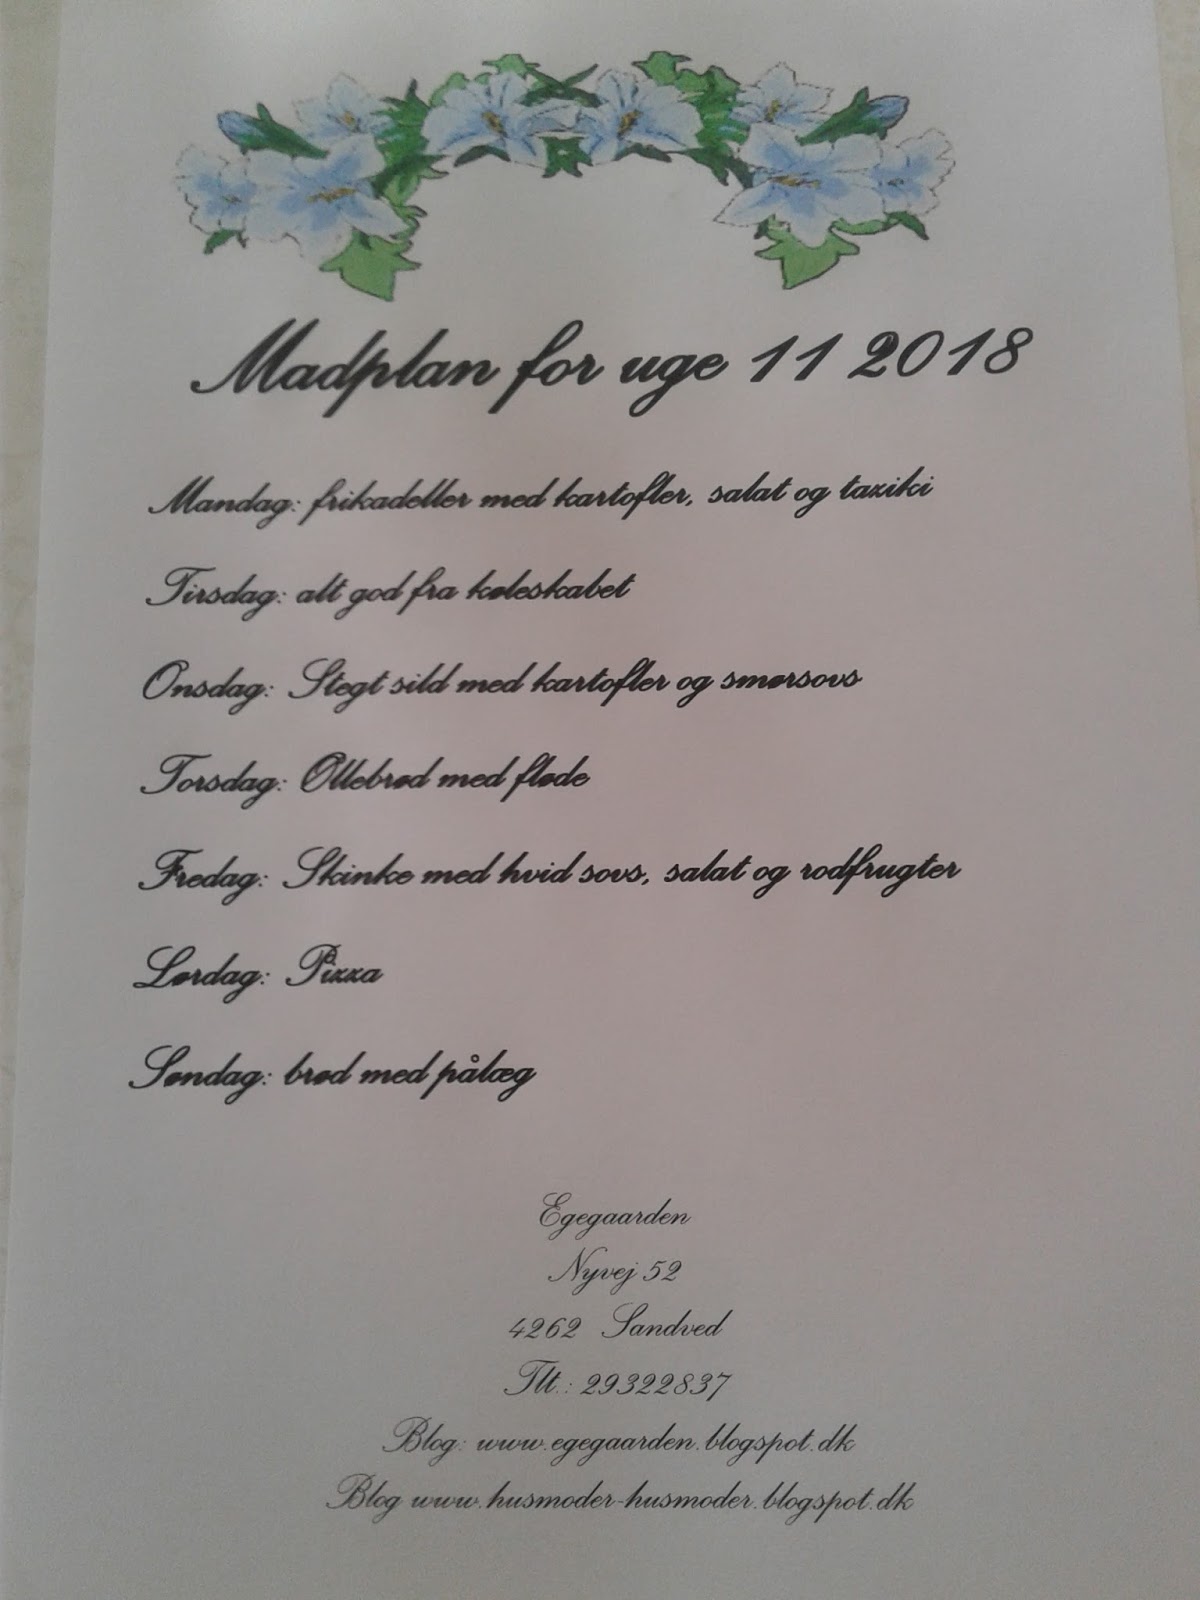 Madplan for uge 11 2018
Mandag: frikadeller med kartofler, salat og taziki
Tirsdag: alt god fra køleskabet
Onsdag: Stegt sild med kartofler og smørsovs
Torsdag: Øllebrød med fløde
Fredag: Skinke med hvid sovs, salat og rodfrugter
Lørdag: Pizza
Søndag: brød med pålæg
Egegaarden
Nyvej 52
4262 Sandved
Tlt.: 29322837
Blog: www.egegaarden.blogspot.dk
Blog www.husmoder-husmoder.blogspot.dk